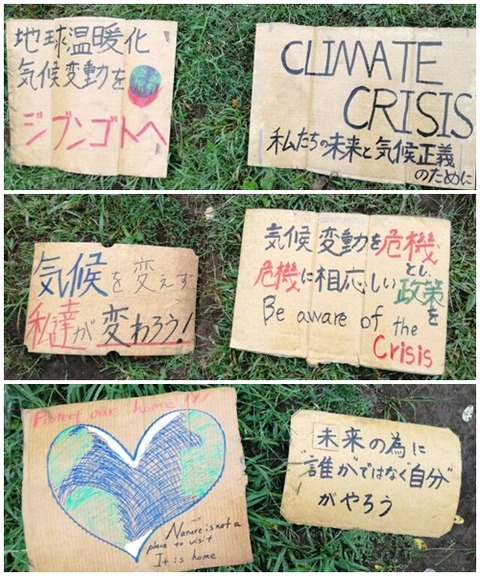 地球温暖化
気候変動を
ジブンゴトへ
CLIMATE
CRISIS
私たちの未来と気候正義
のために
気候を変えず
私達が変わろう!
気候変動を危機
とし
危機に相応しい政策
を
Be aware of the
Crisis
Protect our home!!!
Nature is not a
place to visit
It is home
未来の為に
"誰かではなく自分"
がやろう